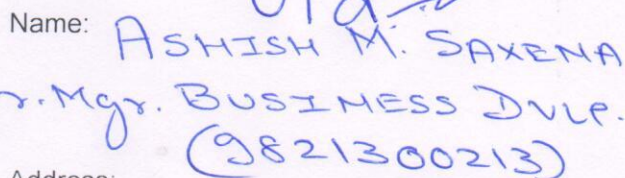 Name: ASHISH M. SAXENA
r. Mgr. BUSINESS DVLP.
(9821300213)
Address: